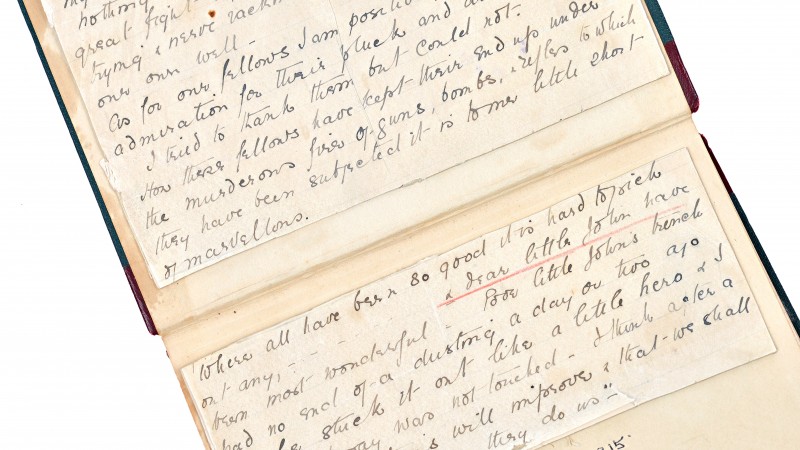 nothing
great fight
trying & nerve rackin
our own well -
As for our fellows I am positiv
admiration for their pluck and
I tried to thank them but could not.
How these fellows have kept their end up under
the murderous fire of guns, bombs, & rifles to which
they have been subjected it is to me little short
of marvellous.
'Where all have been so good it is hard to pick
out any, - - - & dear little John have
been most wonderful - Poor little John's trench
had no end of a dusting a day or two ago
he stuck it out like a little hero & I
was not touched - I think after a
is will improve & that we shall
they do us"
15.